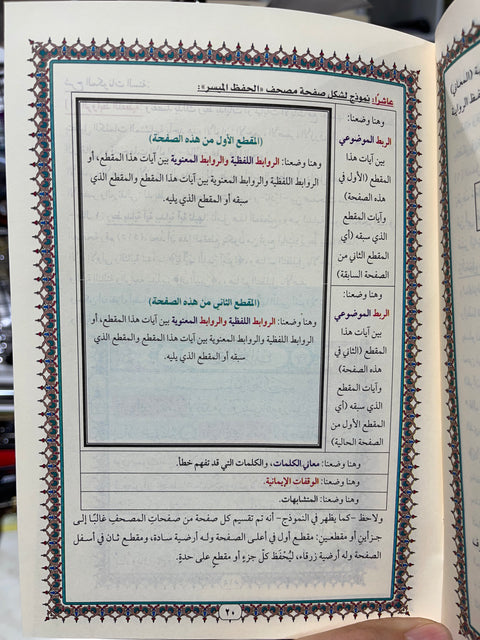 عاشرًا: نموذج لشكل صفحة مصحف «الحفظ الميسر»:
وهنا وضعنا:
الربط الموضوعي
بين آيات هذا
المقطع (الأول في
هذه الصفحة)
وآيات المقطع
الذي سبقه (أي
المقطع الثاني من
الصفحة السابقة)
(المقطع الأول من هذه الصفحة)
وهنا وضعنا: الروابط اللفظية والروابط المعنوية بين آيات هذا المقطع، أو
الروابط اللفظية والروابط المعنوية بين آيات هذا المقطع والمقطع الذي
سبقه أو المقطع الذي يليه.
وهنا وضعنا:
الربط الموضوعي
بين آيات هذا
المقطع (الثاني في
هذه الصفحة)
وآيات المقطع
الذي سبقه (أي
المقطع الأول من
الصفحة الحالية)
(المقطع الثاني من هذه الصفحة)
وهنا وضعنا: الروابط اللفظية والروابط المعنوية بين آيات هذا المقطع، أو
الروابط اللفظية والروابط المعنوية بين آيات هذا المقطع والمقطع الذي
سبقه أو المقطع الذي يليه.
وهنا وضعنا: معاني الكلمات، والكلمات التي قد تفهم خطأ.
وهنا وضعنا: الوقفات الإيمانية.
وهنا وضعنا: المتشابهات.
ولاحظ -كما يظهر في النموذج- أنه تم تقسيم كل صفحة من صفحات المصحف غالبًا إلى
جزأين أو مقطعين: مقطع أول في أعلى الصفحة وله أرضية سادة، ومقطع ثان في أسفل
الصفحة وله أرضية زرقاء، ليُحْفَظ كلّ جزءٍ أو مقطع على حدةٍ.
٢٥